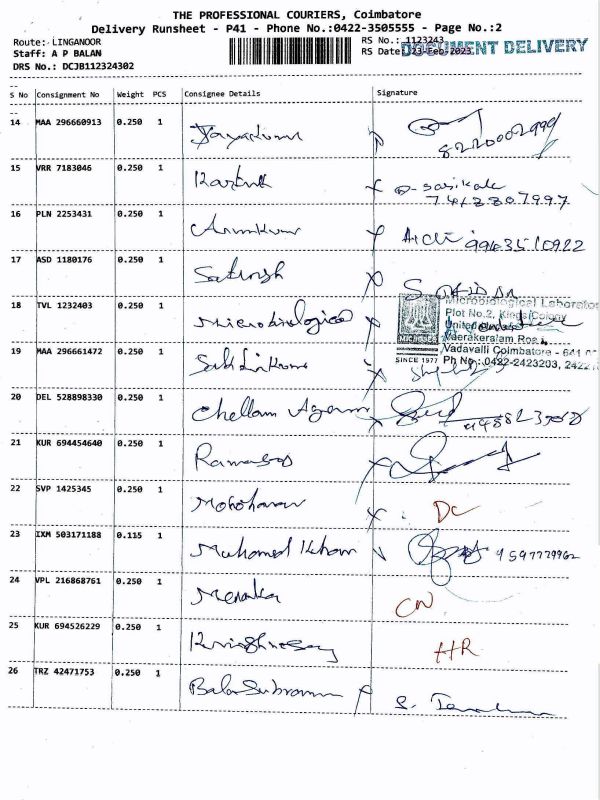 THE PROFESSIONAL COURIERS, Coimbatore
Delivery Runsheet - P41 - Phone No.:0422-3505555 - Page No.:2
Route:- LINGANOOR
RS No.: 1123243
Staff: A P BALAN
RS Date: 23-Feb-2023
DOCUMENT DELIVERY
DRS No.: DCJB112324302
S No Consignment No Weight PCS Consignee Details Signature
14 MAA 296660913 0.250 1 Jayakumar
8220002990
15 VRR 7183046 0.250 1 Karthik D. Sasikala
7418807997
16 PLN 2253431 0.250 1 Arunkumar 9943510922
17 ASD 1180176 0.250 1 Sathish
18 TVL 1232403 0.250 1 Microbiological
Microbiological Laborator
Plot No.2, Kings Colony
Veerakeralam Road,
Vadavalli Coimbatore - 641 0
SINCE 1977 Ph No.:0422-2423203, 2422
19 MAA 296661472 0.250 1
20 DEL 528898330 0.250 1 Chellam Agram
21 KUR 694454640 0.250 1 Ramasoo
22 SVP 1425345 0.250 1 Mohoharan DC
23 IXM 503171188 0.115 1 Mohamed Khan 9597779962
24 VPL 216868761 0.250 1 Menaka CN
25 KUR 694526229 0.250 1 HR
26 TRZ 42471753 0.250 1 BalaSubraman